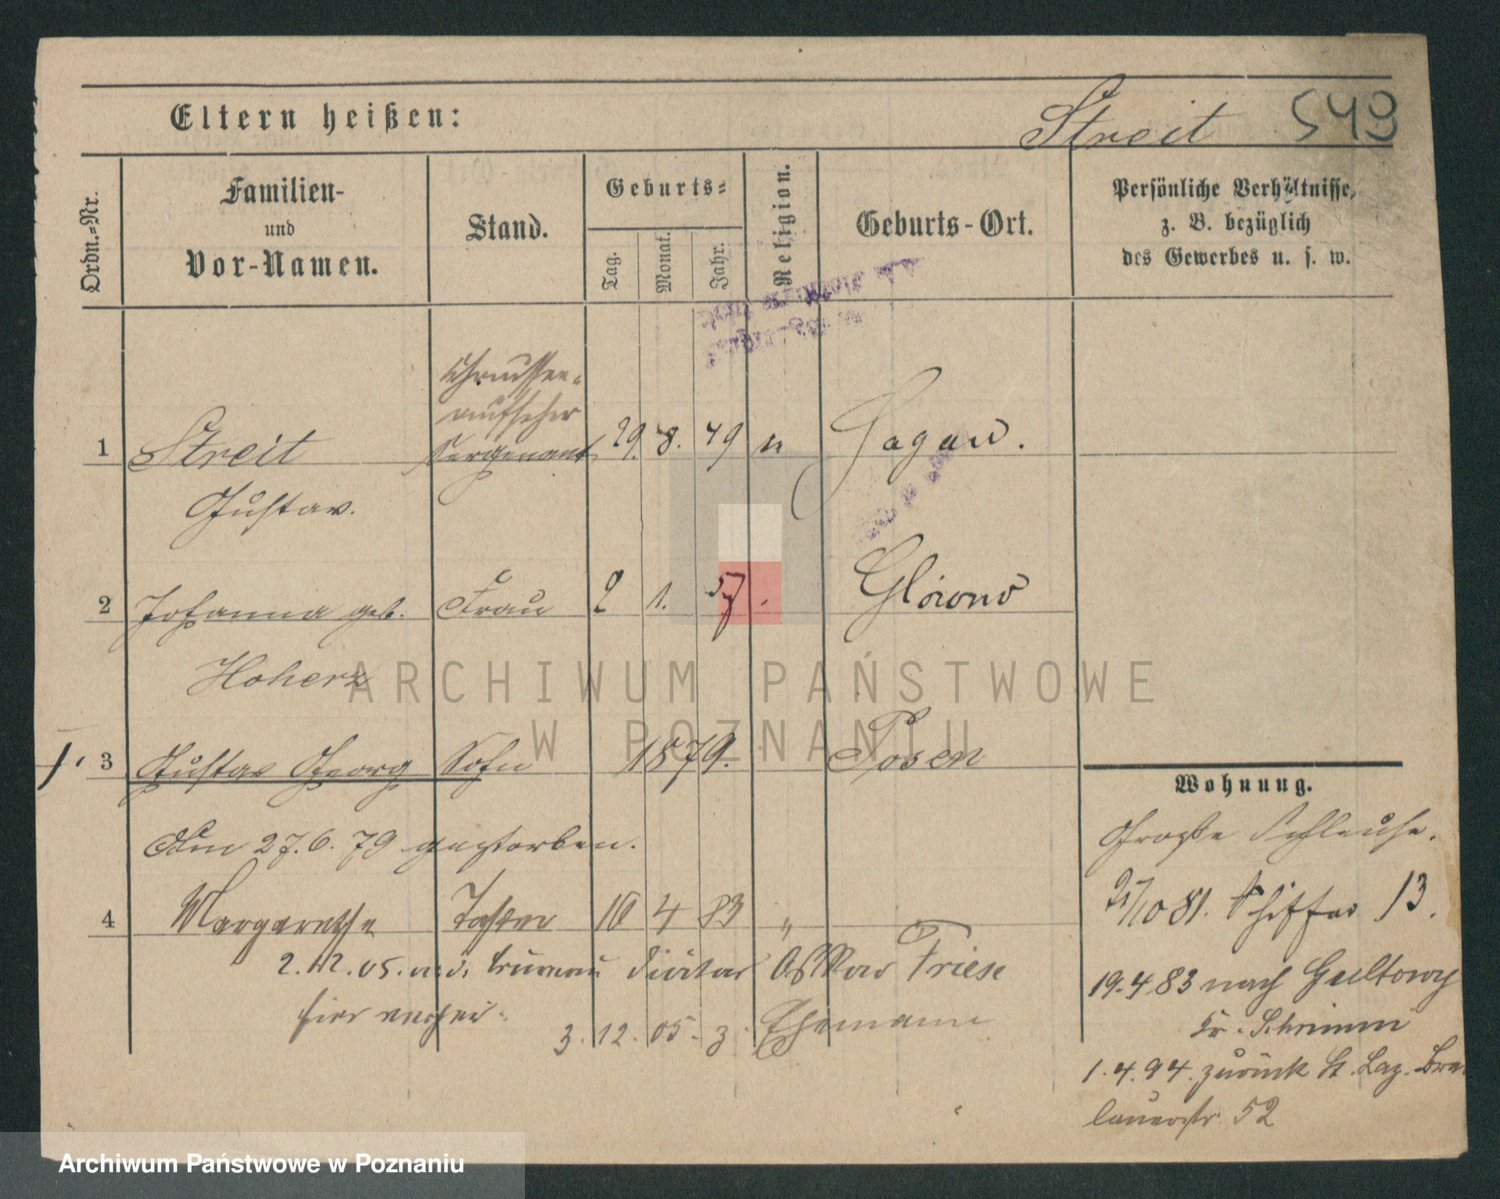 Eltern heißen:
Streit 549
Ordn.-Nr.
Familien-
und
Vor-Namen.
Stand.
Geburts-
Tag.
Monat.
Jahr.
Religion.
Geburts-Ort.
Persönliche Verhältnisse,
z. B. bezüglich
des Gewerbes u. s. w.
Chaussee-
aufseher
1 Streit Sergeant 29. 8. 49
Gustav.
2 Johanna geb. Frau 2 1. 57.
Hoherz
3 Gustav Georg Sohn 1879. Posen
Am 27.6.79 gestorben.
4 Margarethe 10 4 83 "
2.12.05. Friese
hier
3.12.05. Ehemann
Wohnung.
Große Schleuse.
27/10 81. Schiffer 13.
19.4 83 nach Gultowy
Kr. Schrimm
1.4.94. zurück St. Laz. Bres
lauerstr. 52
ARCHIWUM PAŃSTWOWE
W POZNANIU
Archiwum Państwowe w Poznaniu